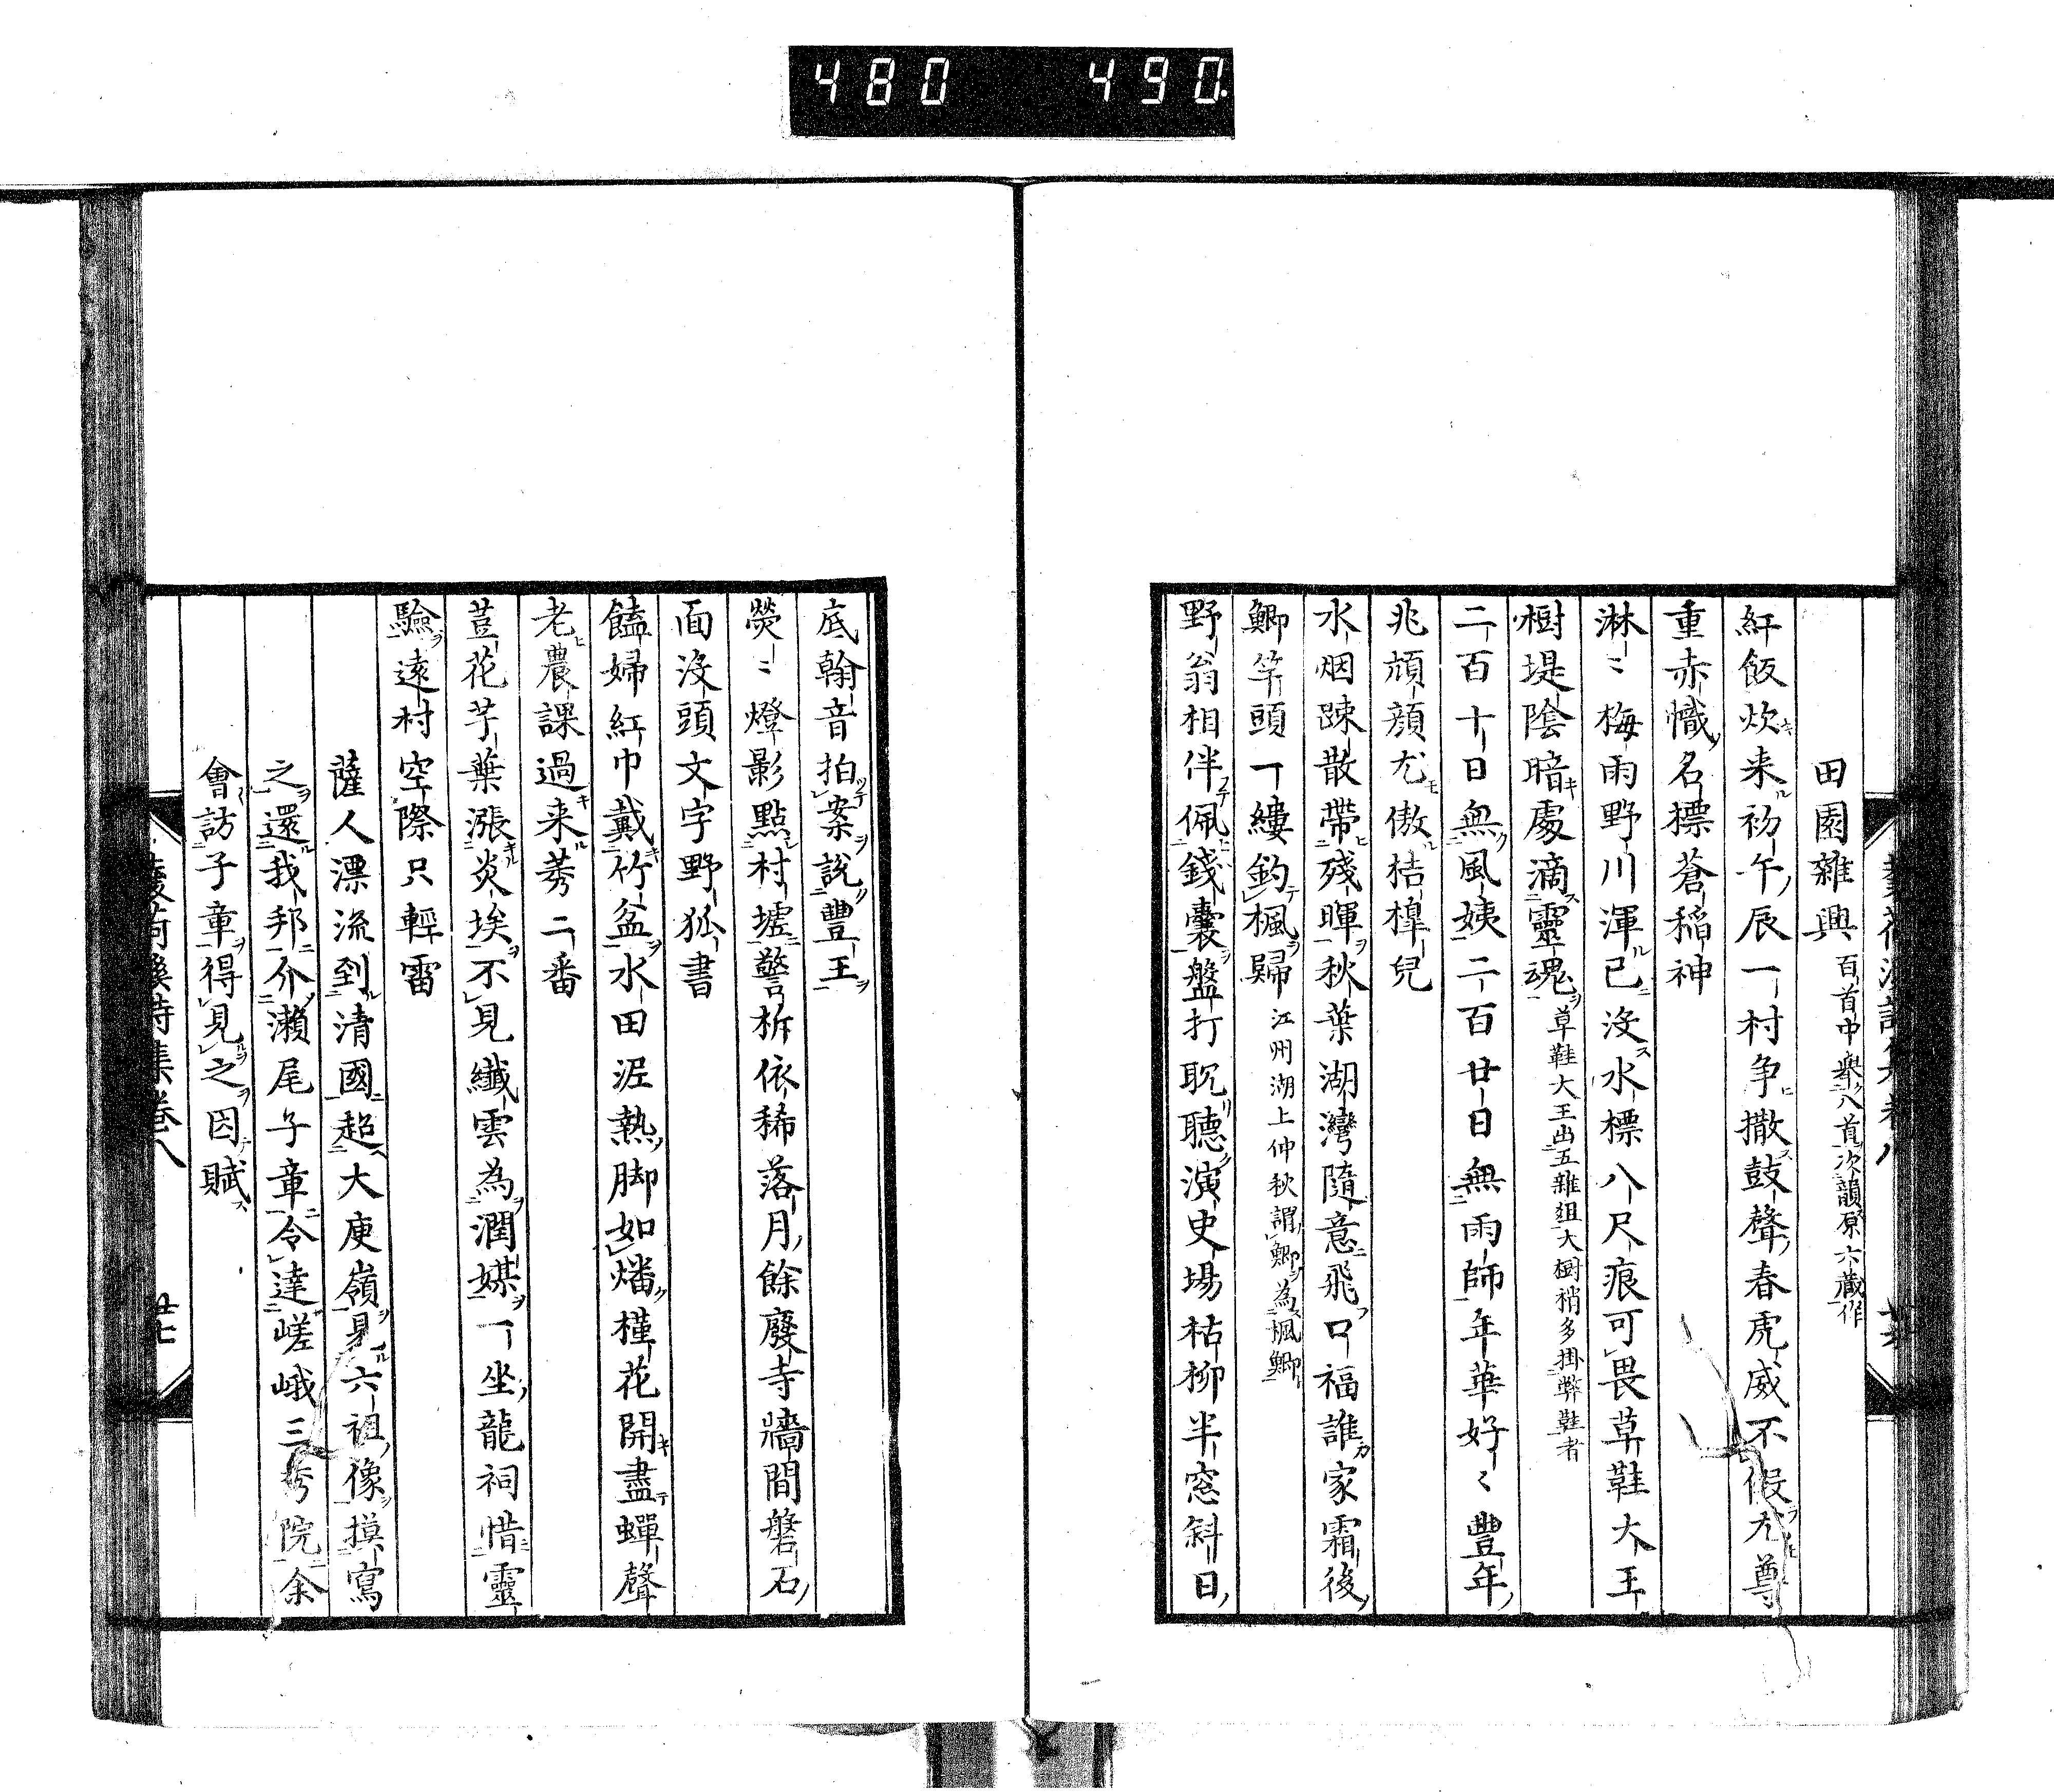 480 490
田園雜興 百首中舉八首次韻原六藏作
紅飯炊来初午辰一村争撒鼓聲春虎威不假尤尊
重赤幟名標蒼稲神
淋〻梅雨野川渾已没水標八尺痕可畏草鞋大王
樹堤陰暗處滴靈魂 草鞋大王出五雜俎大樹梢多掛弊鞋者
二百十日無風姨二百廿日無雨師年華好〻豐年
兆頑顔尤傲桔槹兒
水烟踈散帶殘暉秋葉湖灣隨意飛口福誰家霜後
鯽竿頭一縷釣楓歸 江州湖上仲秋謂鯽為楓鯽
野翁相伴佩錢嚢盤打聴演史場枯柳半窓斜日
底翰音拍案說豐王
熒〻燈影點村墟警柝依稀落月餘廢寺牆間磐石
面没頭文字野狐書
饁婦紅巾戴竹盆水田泥熱脚如燔槿花開盡蟬聲
老農課過来莠二番
荳花芋葉漲炎埃不見纖雲為潤媒一坐龍祠惜靈
驗遠村空際只輕雷
薩人漂流到清國超大庾嶺見六祖像摸寫
之還我邦介瀬尾子章令達嵯峨三秀院余
會訪子章得見之因賦
詩集卷八 廿七